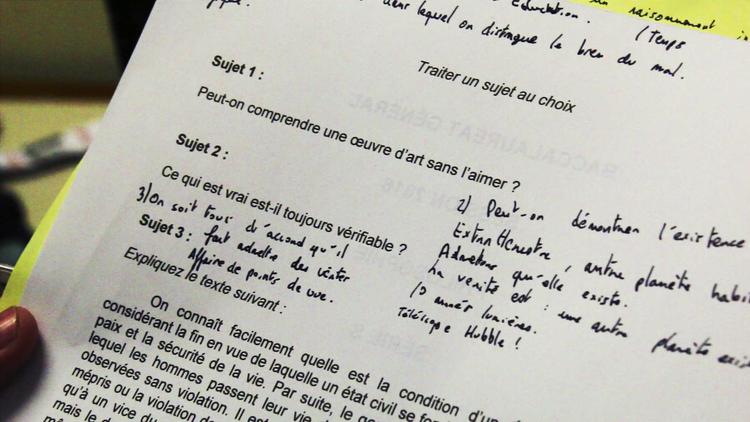 Education.
un raisonnement
dans lequel on distingue le bien du mal.
(Temps
Traiter un sujet au choix
Sujet 1 :
Peut-on comprendre une œuvre d'art sans l'aimer ?
Sujet 2 :
Ce qui est vrai est-il toujours vérifiable ?
3) On soit tous d'accord qu'il
faut admettre des vérités
Affaire de points de vue.
2) Peut-on démontrer l'existence
Extra terrestre, autre planète
Admettons qu'elle existe.
la verité est : une autre planète
années lumières.
Téléscope Hubble !
Sujet 3 :
Expliquez le texte suivant :
On connaît facilement quelle est la condition d'un
considérant la fin en vue de laquelle un état civil se
paix et la sécurité de la vie. Par suite, le
lequel les hommes passent leur vie
observées sans violation. Il
mépris ou la violation de
qu'à un vice du
mais le
BACCALAURÉAT GÉNÉRAL